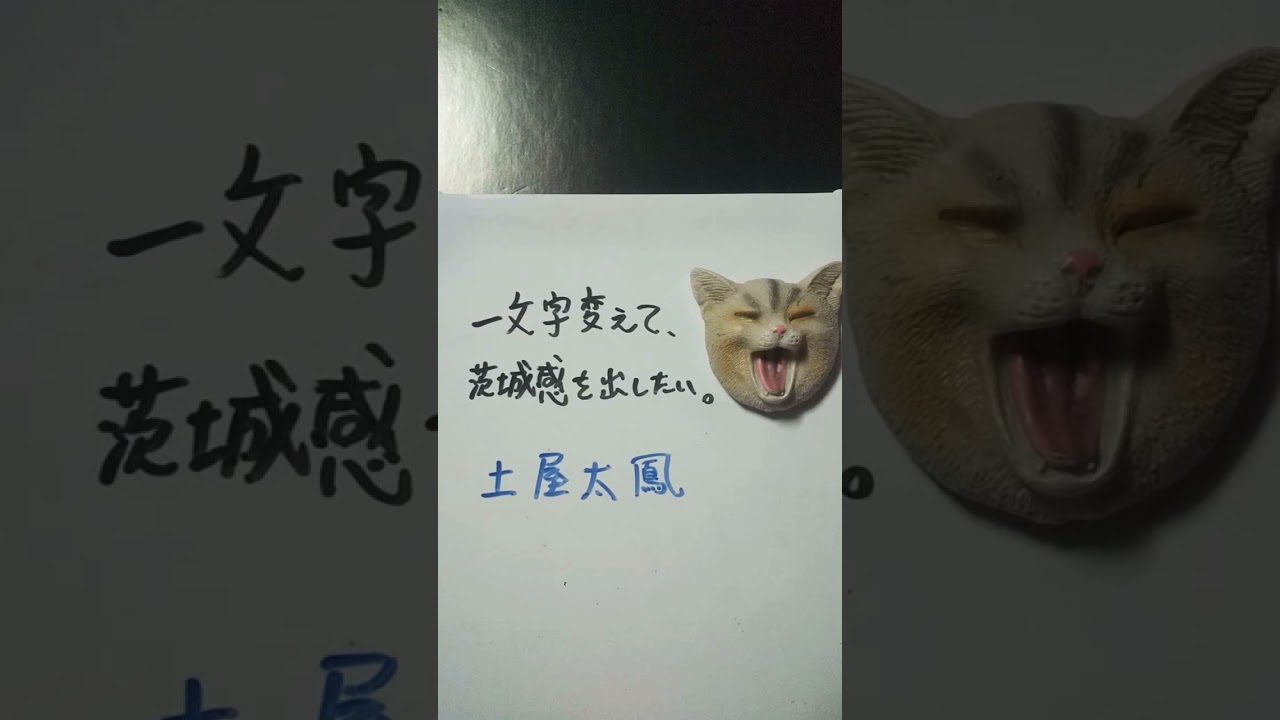 一文字変えて、
茨城感を出したい。
土屋太鳳